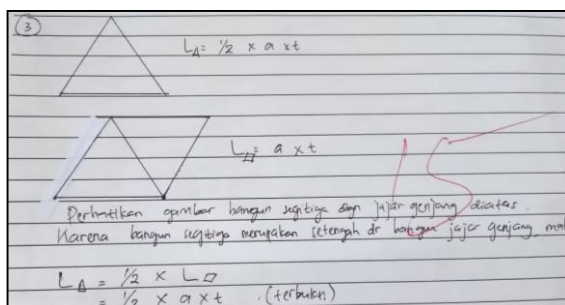 3
L△ = 1/2 x a x t
L▱ = a x t
15
Perhatikan gambar bangun segitiga dgn jajar genjang diatas.
Karena bangun segitiga merupakan setengah dr bangun jajar genjang, mak
L△ = 1/2 x L▱
= 1/2 x a x t . (terbukti)